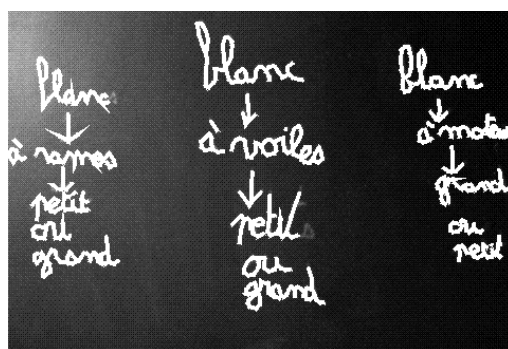 blanc
à rames
petit
ou
grand
blanc
à voiles
petit
ou
grand
blanc
à moteur
grand
ou
petit